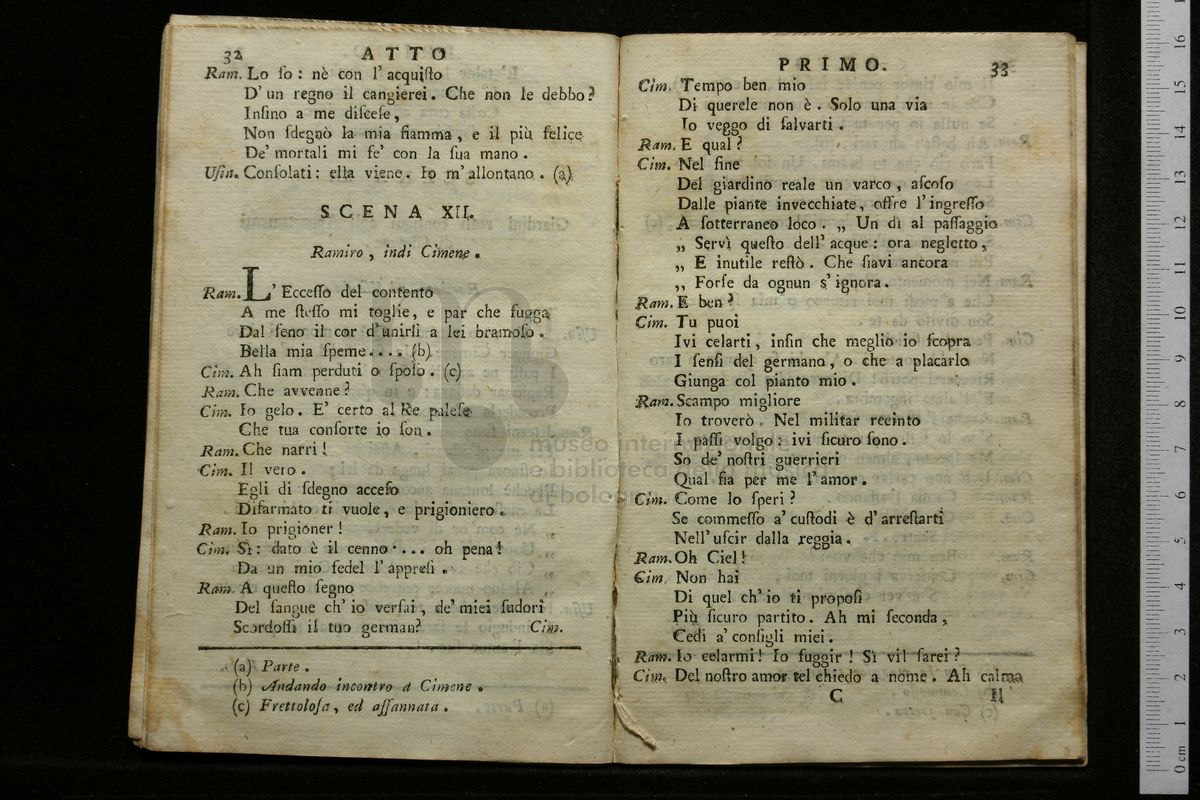 32 ATTO
Ram. Lo ſo: nè con l' acquiſto
D' un regno il cangierei. Che non le debbo?
Inſino a me diſceſe,
Non ſdegnò la mia fiamma, e il più felice
De' mortali mi fe' con la ſua mano.
Uſin. Conſolati: ella viene. Io m' allontano. (a)
SCENA XII.
Ramiro, indi Cimene.
Ram. L' Ecceſſo del contento
A me ſteſſo mi toglie, e par che fugga
Dal ſeno il cor d'unirſi a lei bramoſo.
Bella mia ſpeme.... (b)
Cim. Ah ſiam perduti o ſpoſo. (c)
Ram. Che avvenne?
Cim. Io gelo. E' certo al Re paleſe
Che tua conſorte io ſon.
Ram. Che narri!
Cim. Il vero.
Egli di ſdegno acceſo
Diſarmato ti vuole, e prigioniero.
Ram. Io prigioner!
Cim. Sì: dato è il cenno.... oh pena!
Da un mio fedel l' appreſi.
Ram. A queſto ſegno
Del ſangue ch' io verſai, de' miei ſudori
Scordoſſi il tuo german? Cim.
(a) Parte.
(b) Andando incontro a Cimene.
(c) Frettoloſa, ed aſſannata.
PRIMO. 33
Cim. Tempo ben mio
Di querele non è. Solo una via
Io veggo di ſalvarti.
Ram. E qual?
Cim. Nel fine
Del giardino reale un varco, aſcoſo
Dalle piante invecchiate, offre l' ingreſſo
A ſotterraneo loco. „ Un dì al paſſaggio
„ Servì queſto dell' acque: ora negletto,
„ E inutile reſtò. Che ſiavi ancora
„ Forſe da ognun s' ignora.
Ram. E ben?
Cim. Tu puoi
Ivi celarti, inſin che meglio io ſcopra
I ſenſi del germano, o che a placarlo
Giunga col pianto mio.
Ram. Scampo migliore
Io troverò. Nel militar recinto
I paſſi volgo: ivi ſicuro ſono.
So de' noſtri guerrieri
Qual ſia per me l' amor.
Cim. Come lo ſperi?
Se commeſſo a' cuſtodi è d' arreſtarti
Nell' uſcir dalla reggia.
Ram. Oh Ciel!
Cim. Non hai
Di quel ch' io ti propoſi
Più ſicuro partito. Ah mi ſeconda,
Cedi a' conſigli miei.
Ram. Io celarmi! Io fuggir! Sì vil ſarei?
Cim. Del noſtro amor tel chiedo a nome. Ah calma
C Il
museo internazionale
e biblioteca della musica
di bologna
0 cm 1 2 3 4 5 6 7 8 9 10 11 12 13 14 15 16